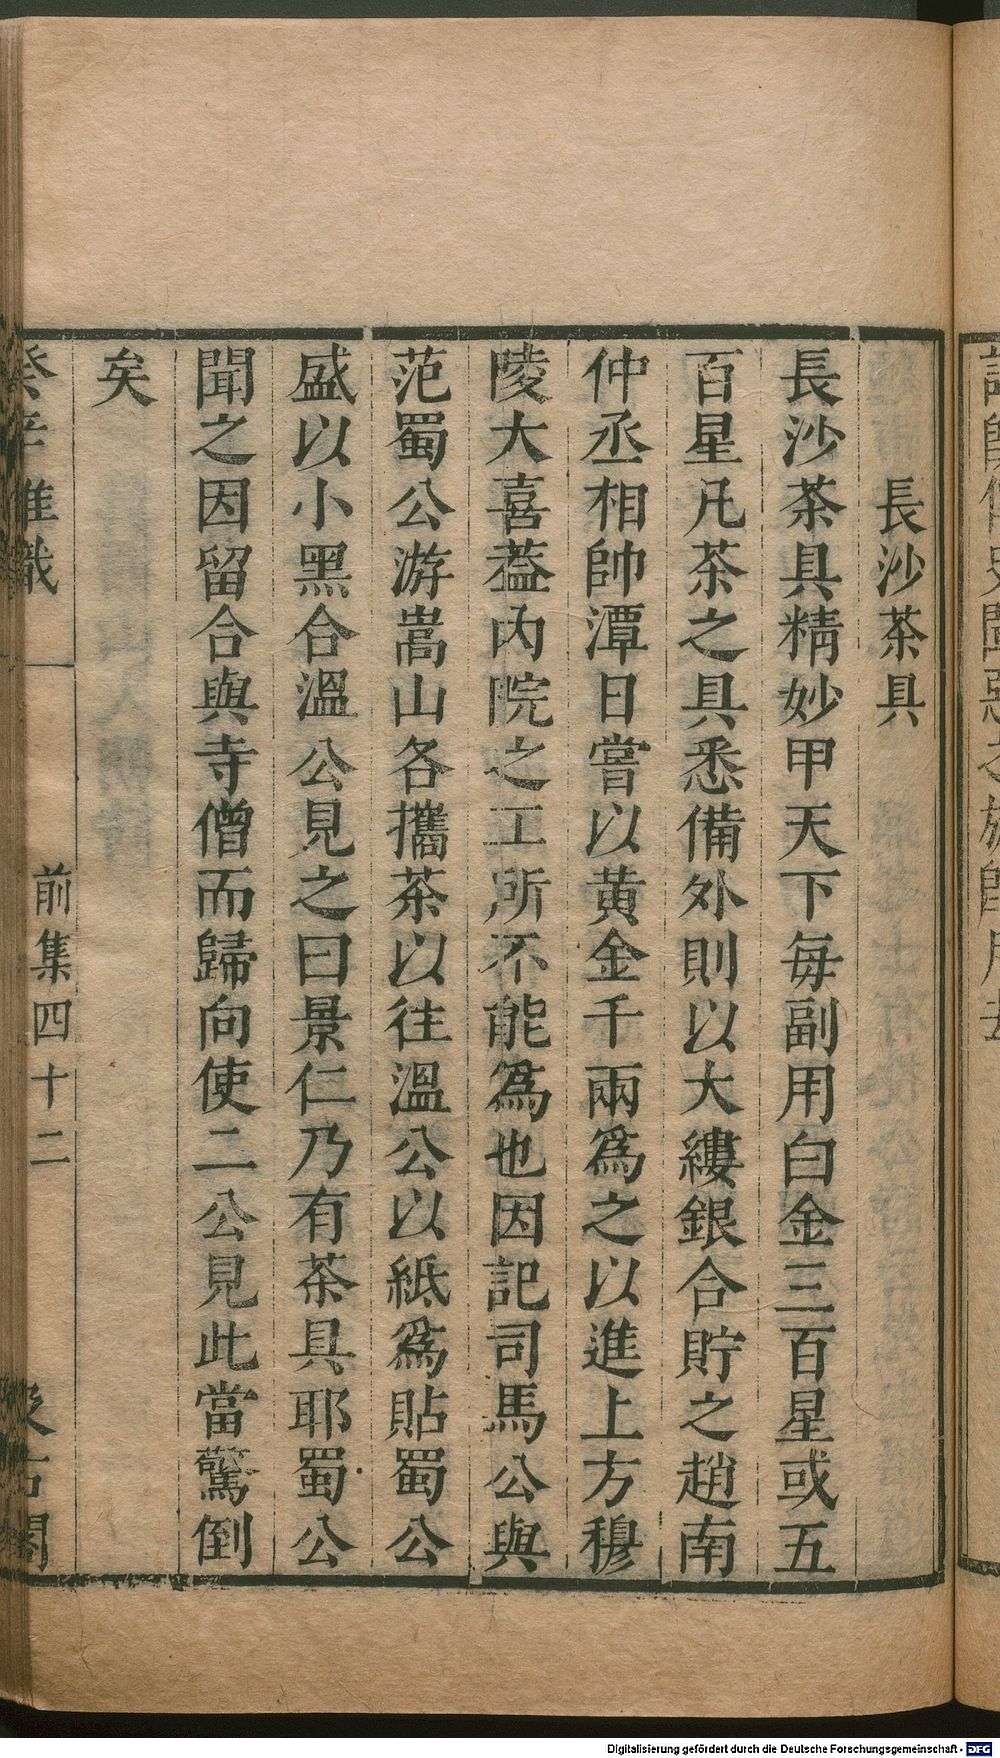 長沙茶具
長沙茶具精妙甲天下每副用白金三百星或五
百星凡茶之具悉備外則以大縷銀合貯之趙南
仲丞相帥潭日嘗以黄金千兩爲之以進上方穆
陵大喜葢内院之工所不能爲也因記司馬公與
范蜀公游嵩山各攜茶以往溫公以紙爲貼蜀公
盛以小黑合溫公見之曰景仁乃有茶具耶蜀公
聞之因留合與寺僧而歸向使二公見此當驚倒
矣
癸辛雜識
前集四十二
汲古閣
Digitalisierung gefördert durch die Deutsche Forschungsgemeinschaft - DFG